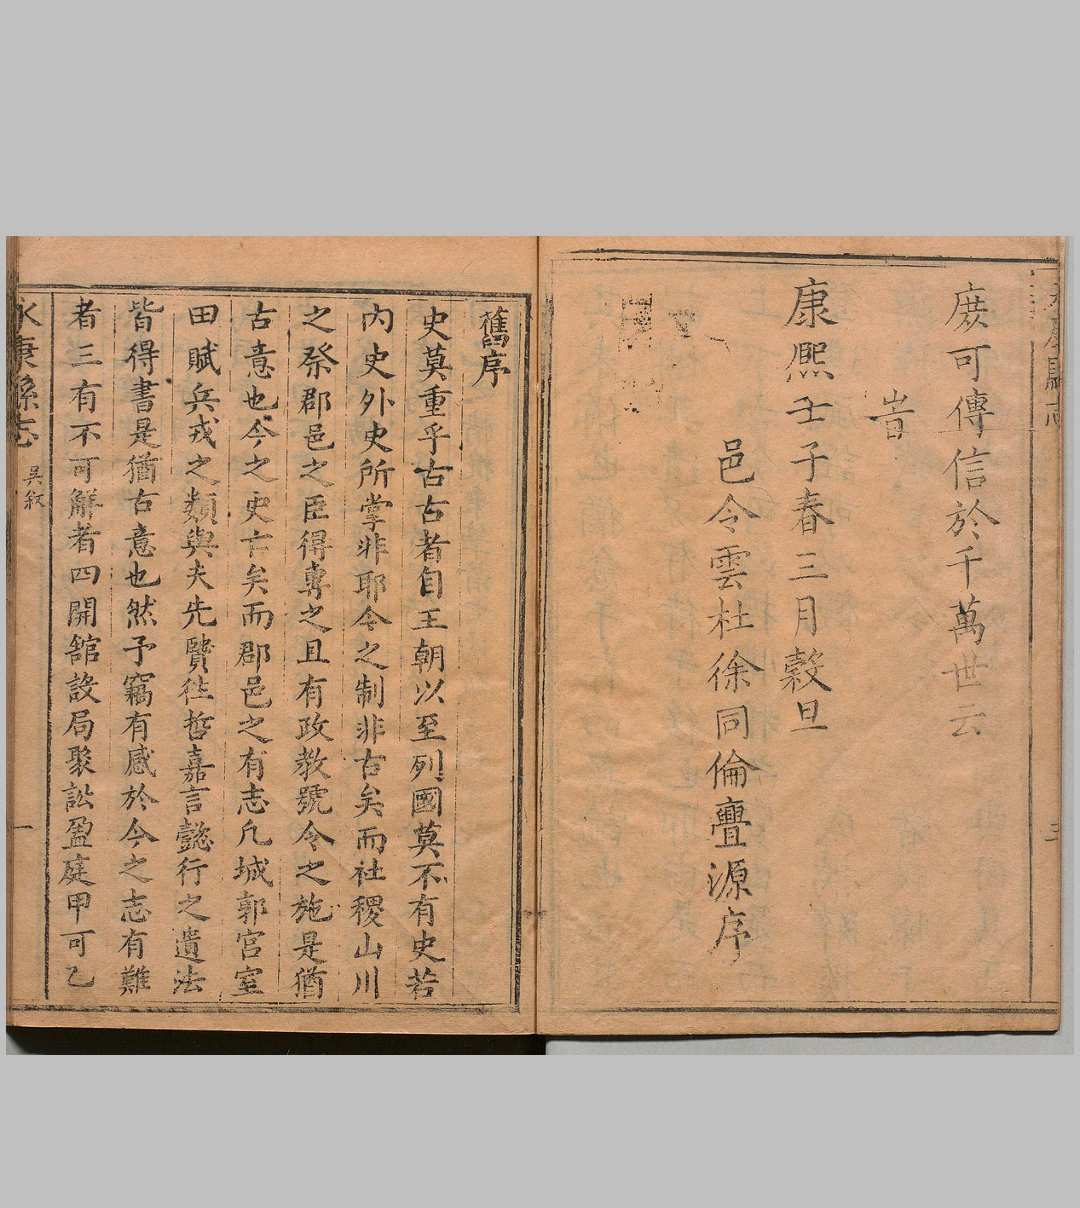 庶可傳信於千萬世云
旹
康熙壬子春三月穀旦
邑令雲杜徐同倫亹源序
三
舊序
史莫重乎古古者自王朝以至列國莫不有史若
內史外史所掌非耶今之制非古矣而社稷山川
之祭郡邑之臣得專之且有政教號令之施是猶
古意也今之史亡矣而郡邑之有志凡城郭宮室
田賦兵戎之類與夫先賢往哲嘉言懿行之遺法
皆得書是猶古意也然予竊有感於今之志有難
者三有不可解者四開舘設局聚訟盈庭甲可乙
永康縣志
吳叙
一